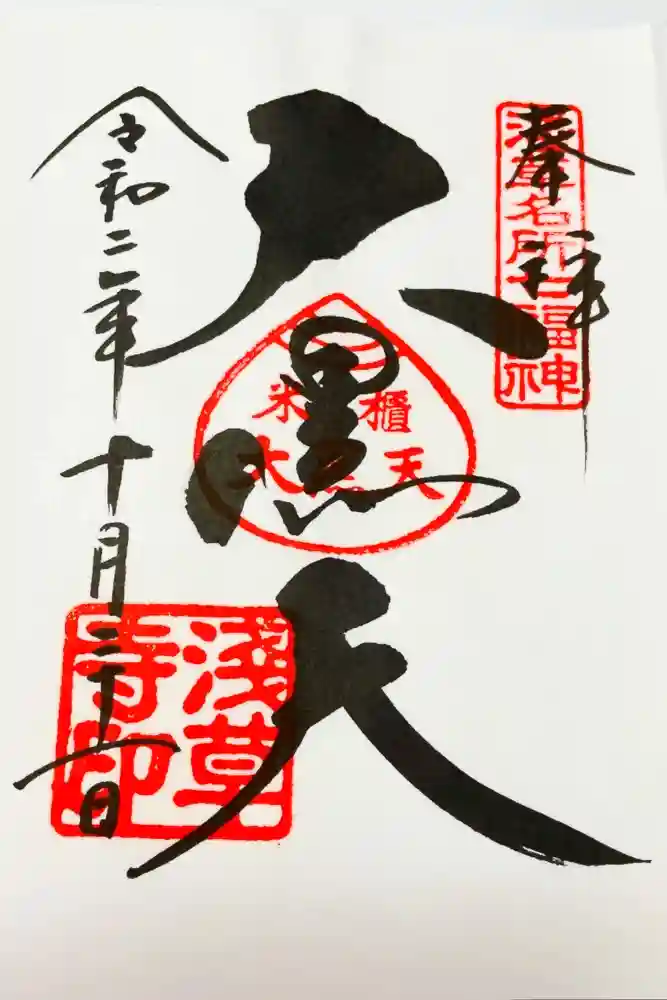 奉拝
浅草名所七福神
大黒天
米櫃
大黒天
令和二年十月三十一日
淺草
寺印